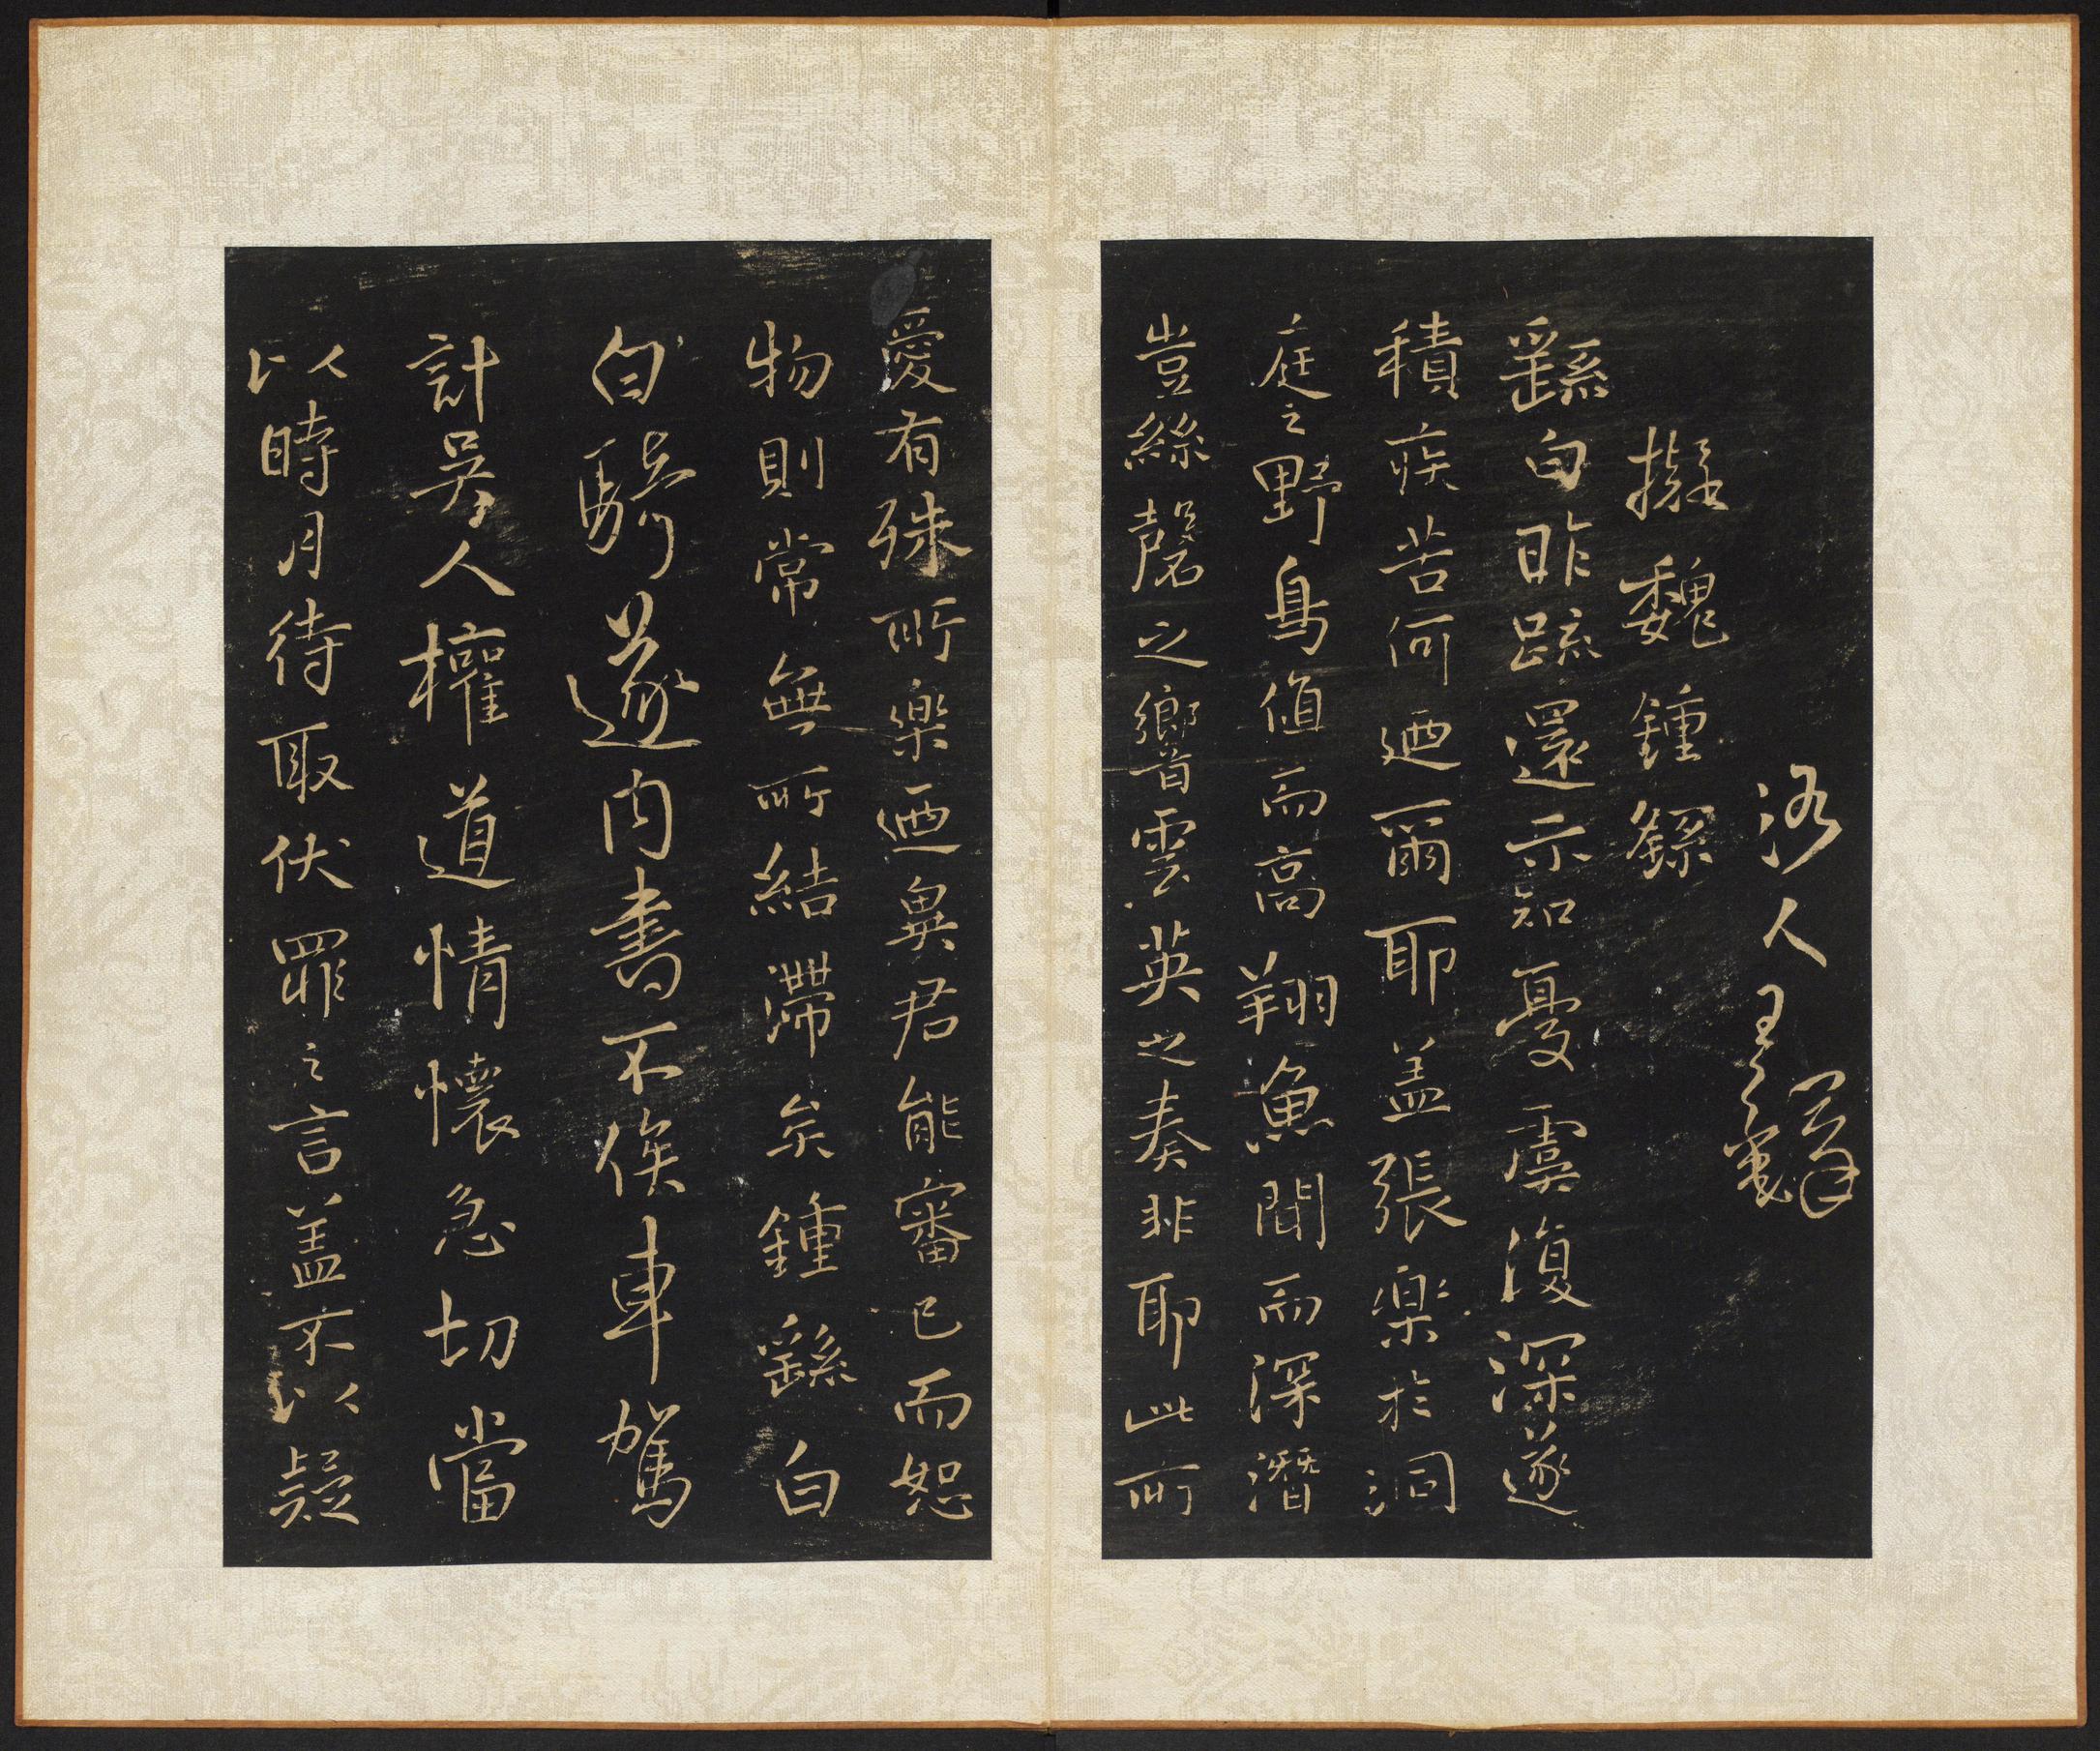 洛人王鐸
擬魏鍾繇
繇白昨疏還示知憂虞復深遂
積疾苦何廼爾耶盖張樂於洞
庭之野鳥值而高翔魚聞而深潛
豈絲磬之響雲英之奏非耶此所
愛有殊所樂廼異君能審已而恕
物則常無所結滯矣鍾繇白
白騎遂內書不俟車駕
計吴人權道情懷急切當
以時月待取伏罪之言盖不以疑